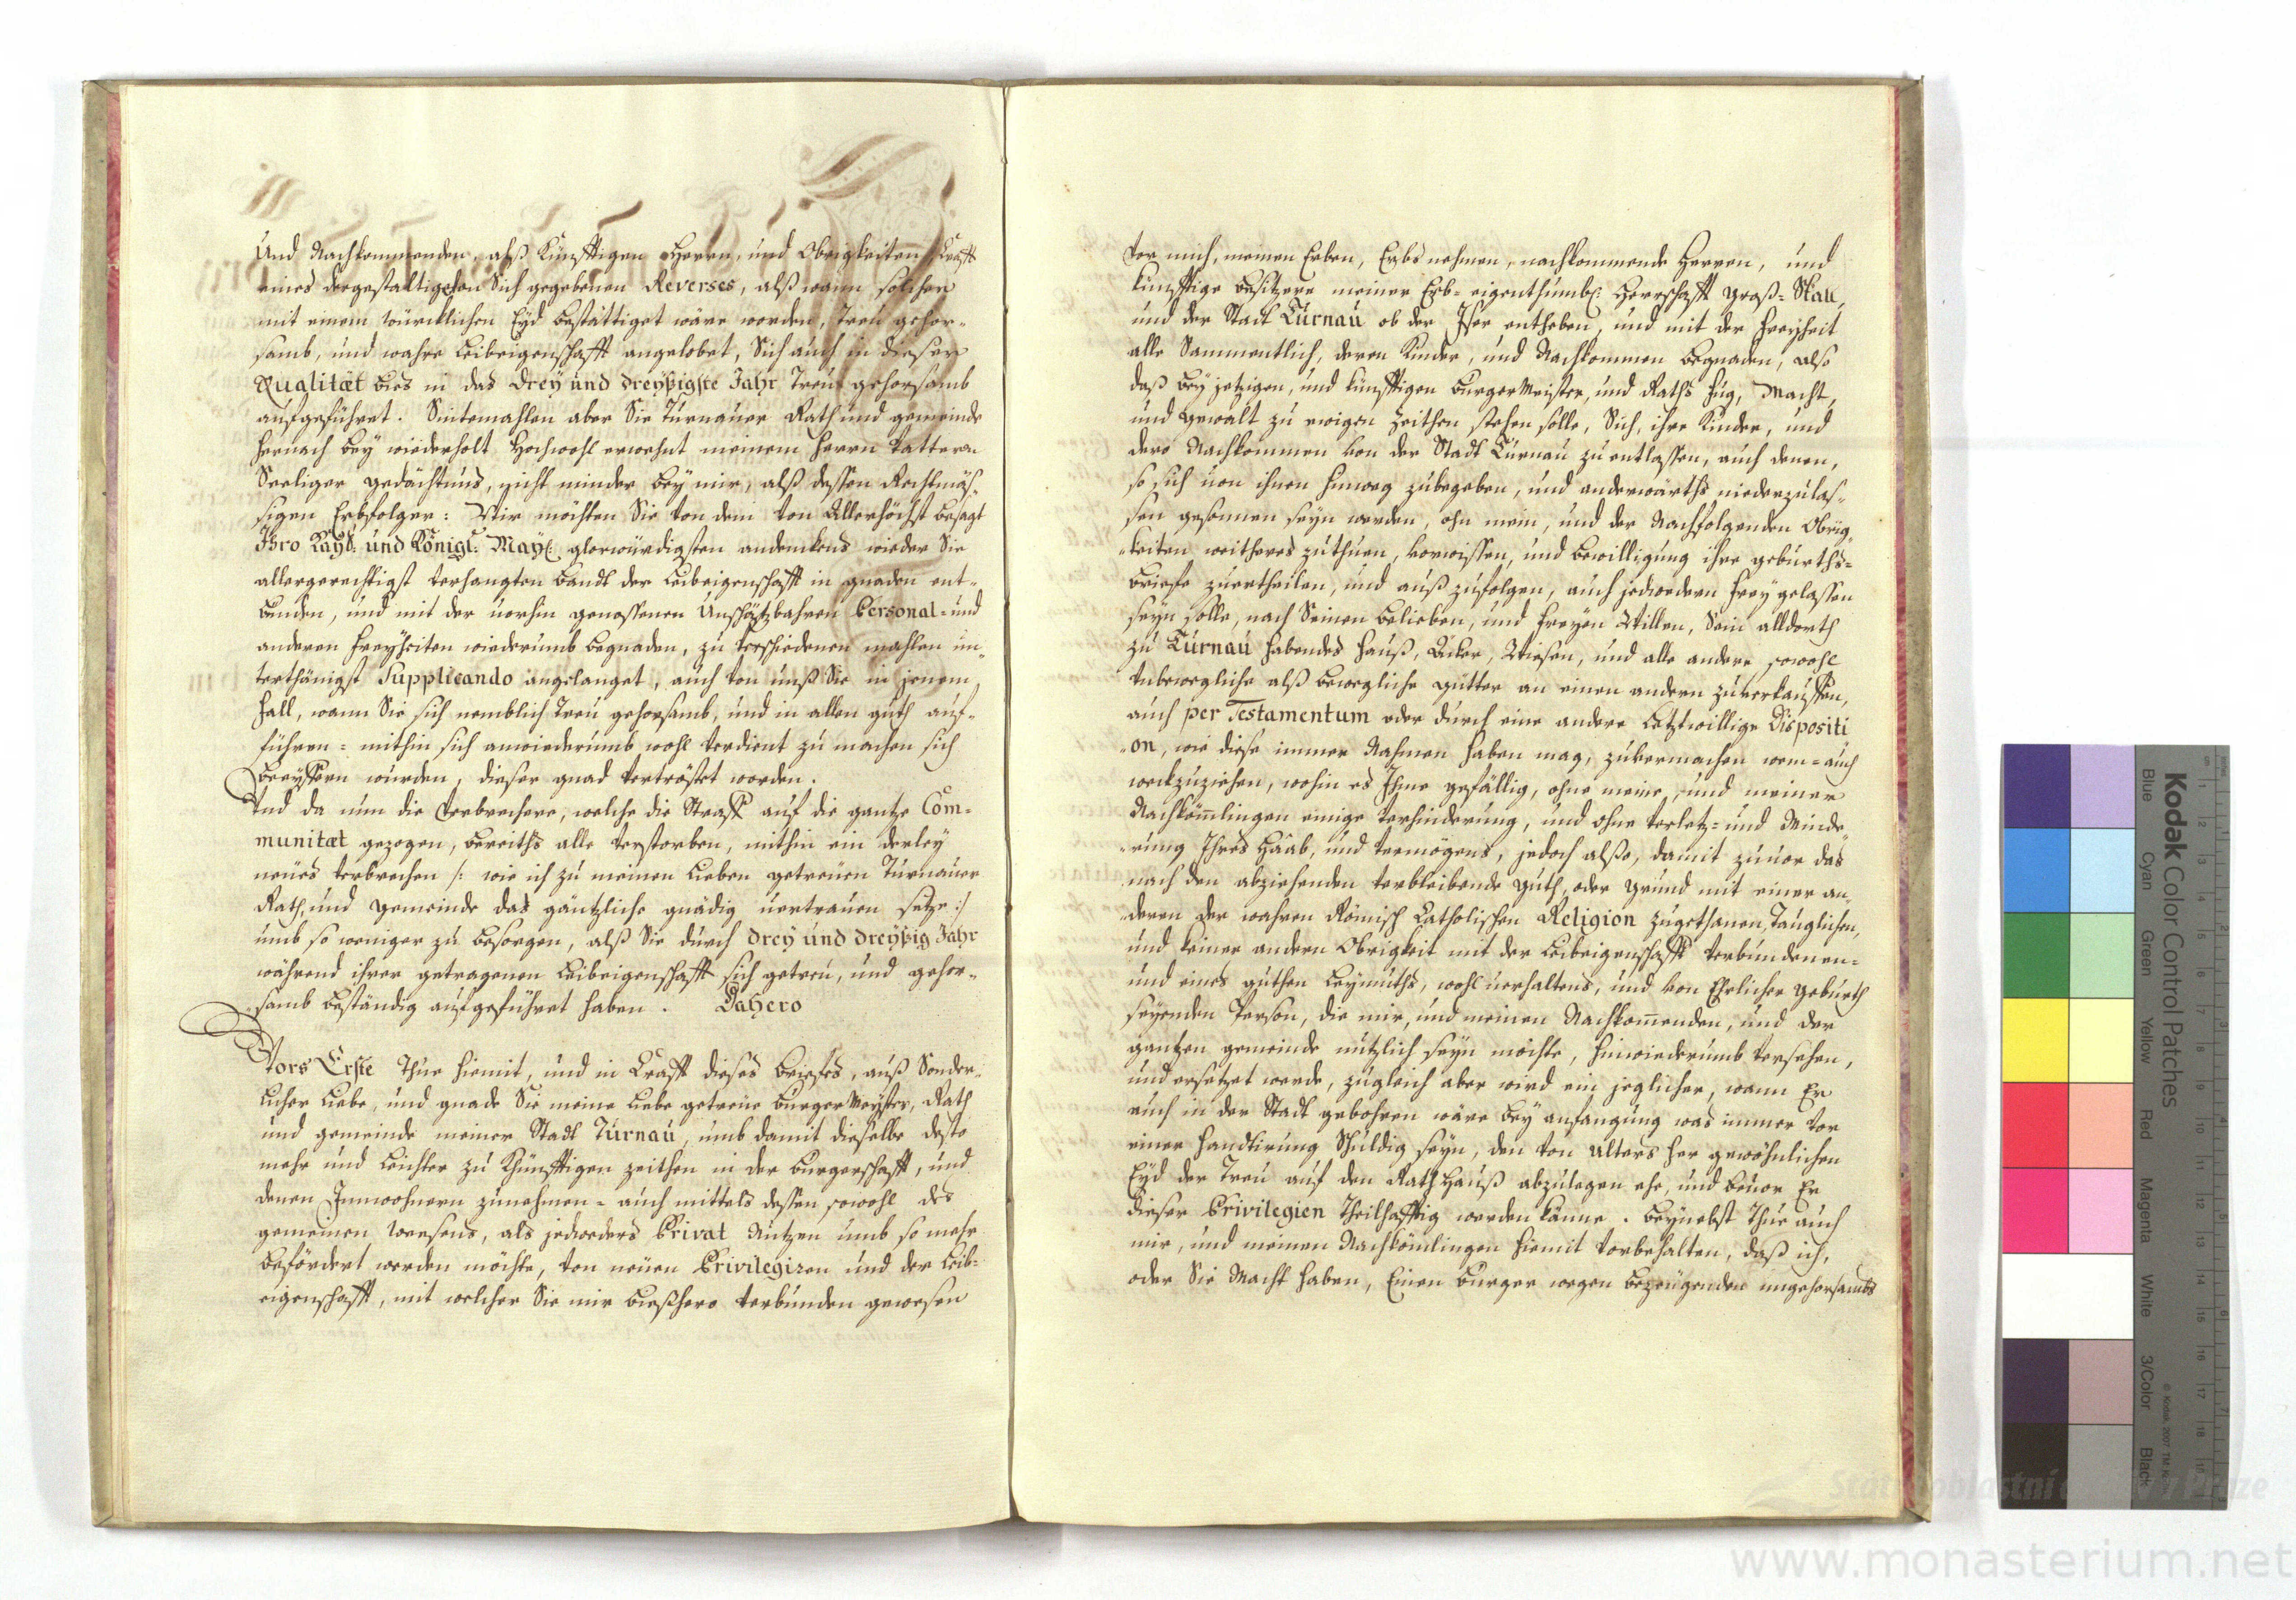 Und Nachkommenden, alß Künfftigen Herrn, und Obrigkeiten Krafft
eines dergestaltig von Sich gegebenen Reverses, alß wann solcher
mit einem würcklichen Eyd bestättiget wäre worden, Treu gehor-
samb, und wahre Leibeigenschafft angelobet, Sich auch in dieser
Qualitæt bies in das Drey und dreyßigste Jahr Treu gehorsamb
aufgeführet. Sintemahlen aber Sie Turnauer Rath und gemeinde
hernach bey wiederholt Hochwohl erwehnt meinem Herrn Vattern
Seeliger gedächtnus, nicht minder bey mir, alß dessen Rechtmäs-
sigen Erbfolger: Wir möchten Sie von dem von Allerhöchst besagt
Ihro Kayß: und Königl: May: glorwürdigsten andenckens wieder Sie
allergerechtigst verhangten bandt der Leibeigenschafft in gnaden ent-
bunden, und mit der vorhin genossenen Unschätzbahren Personal- und
anderen Freyheiten wiederumb begnaden, zu verschiedenen mahlen un-
terthänigst Supplicando angelanget, auch von unß Sie in jenem
fall, wann Sie sich nemblich Treu gehorsamb, und in allen guth auf-
führen- mithin sich anwiederumb wohl verdient zu machen sich
beeyffern wurden, dieser gnad vertröstet worden.
Und da nun die Verbrechere, welche die Straff auf die gantze Com-
munitæt gezogen, bereiths alle verstorben, mithin ein derley
neües verbrechen /: wie ich zu meinen Lieben getreüen Turnauer
Rath, und gemeinde das gäntzliche gnädig vertrauen setze :/
umb so weniger zu besorgen, alß Sie durch drey und dreyßig Jahr
während ihrer getragenen Leibeigenschafft sich getreu, und gehor-
samb beständig aufgeführet haben. Dahero
Vors Erste Thue hiemit, und in Krafft dieses briefes, auß Sonder-
licher Liebe, und gnade Sie meine Liebe getreüe burgerMeyster, Rath
und gemeinde meiner Stadt Turnau, umb damit dieselbe desto
mehr und Leichter zu Khünfftigen zeithen in der burgerschafft, und
denen Innwohnern zunehmen- auch mittels dessen sowohl des
gemeinen weesens, als jedweders Privat Nutzen umb so mehr
befördert werden möchte, von neüen Privilegiren und der Leib-
eigenschafft, mit welcher Sie mir bießhero verbunden gewesen
vor mich, meinen Erben, Erbsnehmen, nachkommende Herren, und
künfftige besitzere meiner Erb- eigenthumbl: Herrschafft groß- Skall,
und der Stadt Turnau ob der Iser entheben, und mit der Freyheit
alle Sammentlich, deren Kinder, und Nachkommen begnaden, alß
daß bey jetzigen, und künfftigen burgerMeister, und Raths fug, Macht,
und Gewalt zu ewigen zeithen stehen solle, Sich, ihre Kinder, und
dero Nachkommen von der Stadt Turnau zu entlassen, auch denen,
so sich von ihnen hinweg zubegeben, und anderwärths niederzulas-
sen gesonnen seyn werden, ohn mein, und der Nachfolgenden Obrig-
keiten weitheres zuthuen, vorwissen, und bewilligung ihre geburths-
briefe zuertheilen, und außzufolgen, auch jedwedern Frey gelassen
seyn solle, nach Seinen belieben, und Freyen Willen, Sein alldorth
zu Turnau habendes Hauß, Äcker, Wiesen, und alle andere sowohl
Unbewegliche alß bewegliche gütter an einen andern zuverkauffen,
auch per Testamentum oder durch eine andere Letztwillige Dispositi
on, wie diese immer Nahmen haben mag, zuvermachen wem- auch
weckzuziehen, wohin es Ihme gefällig, ohne meine, und meiner
Nachkömlingen einige verhinderung, und ohne verletz- und Minde-
rung Ihres Haab, und vermögens, jedoch also, damit zuvor das
nach den abziehenden verbleibende guth, oder grund mit einer an-
deren der wahren Römisch Catholischen Religion zugethanen, Tauglichen,
und keiner andern Obrigkeit mit der Leibeigenschafft verbundenen-
und eines guthen Leymuths, wohl verhaltens, und von Ehrlicher geburth
seyenden Person, die mir, und meinen Nachkommenden, und der
gantzen gemeinde nützlich seyn möchte, hinwiederumb versehen,
und ersetzet werde, zugleich aber wird ein jeglicher, wann Er
auch in der Stadt gebohren wäre bey anfangung was immer vor
einer handtirung Schuldig seyn, den von Alters her gewöhnlichen
Eyd der Treu auf den RathHauß abzulegen ehe, und bevor Er
dieser Privilegien Theilhafftig werden könne. beynebst Thue auch
mir, und meinen Nachkömlingen hiemit vorbehalten, daß ich,
oder Sie Macht haben, Einen burger wegen bezeügenden ungehorsambs
Kodak Color Control Patches
Blue Cyan Green Yellow Red Magenta White 3/Color Black
© Kodak, 2007 TM: Kodak
www.monasterium.net